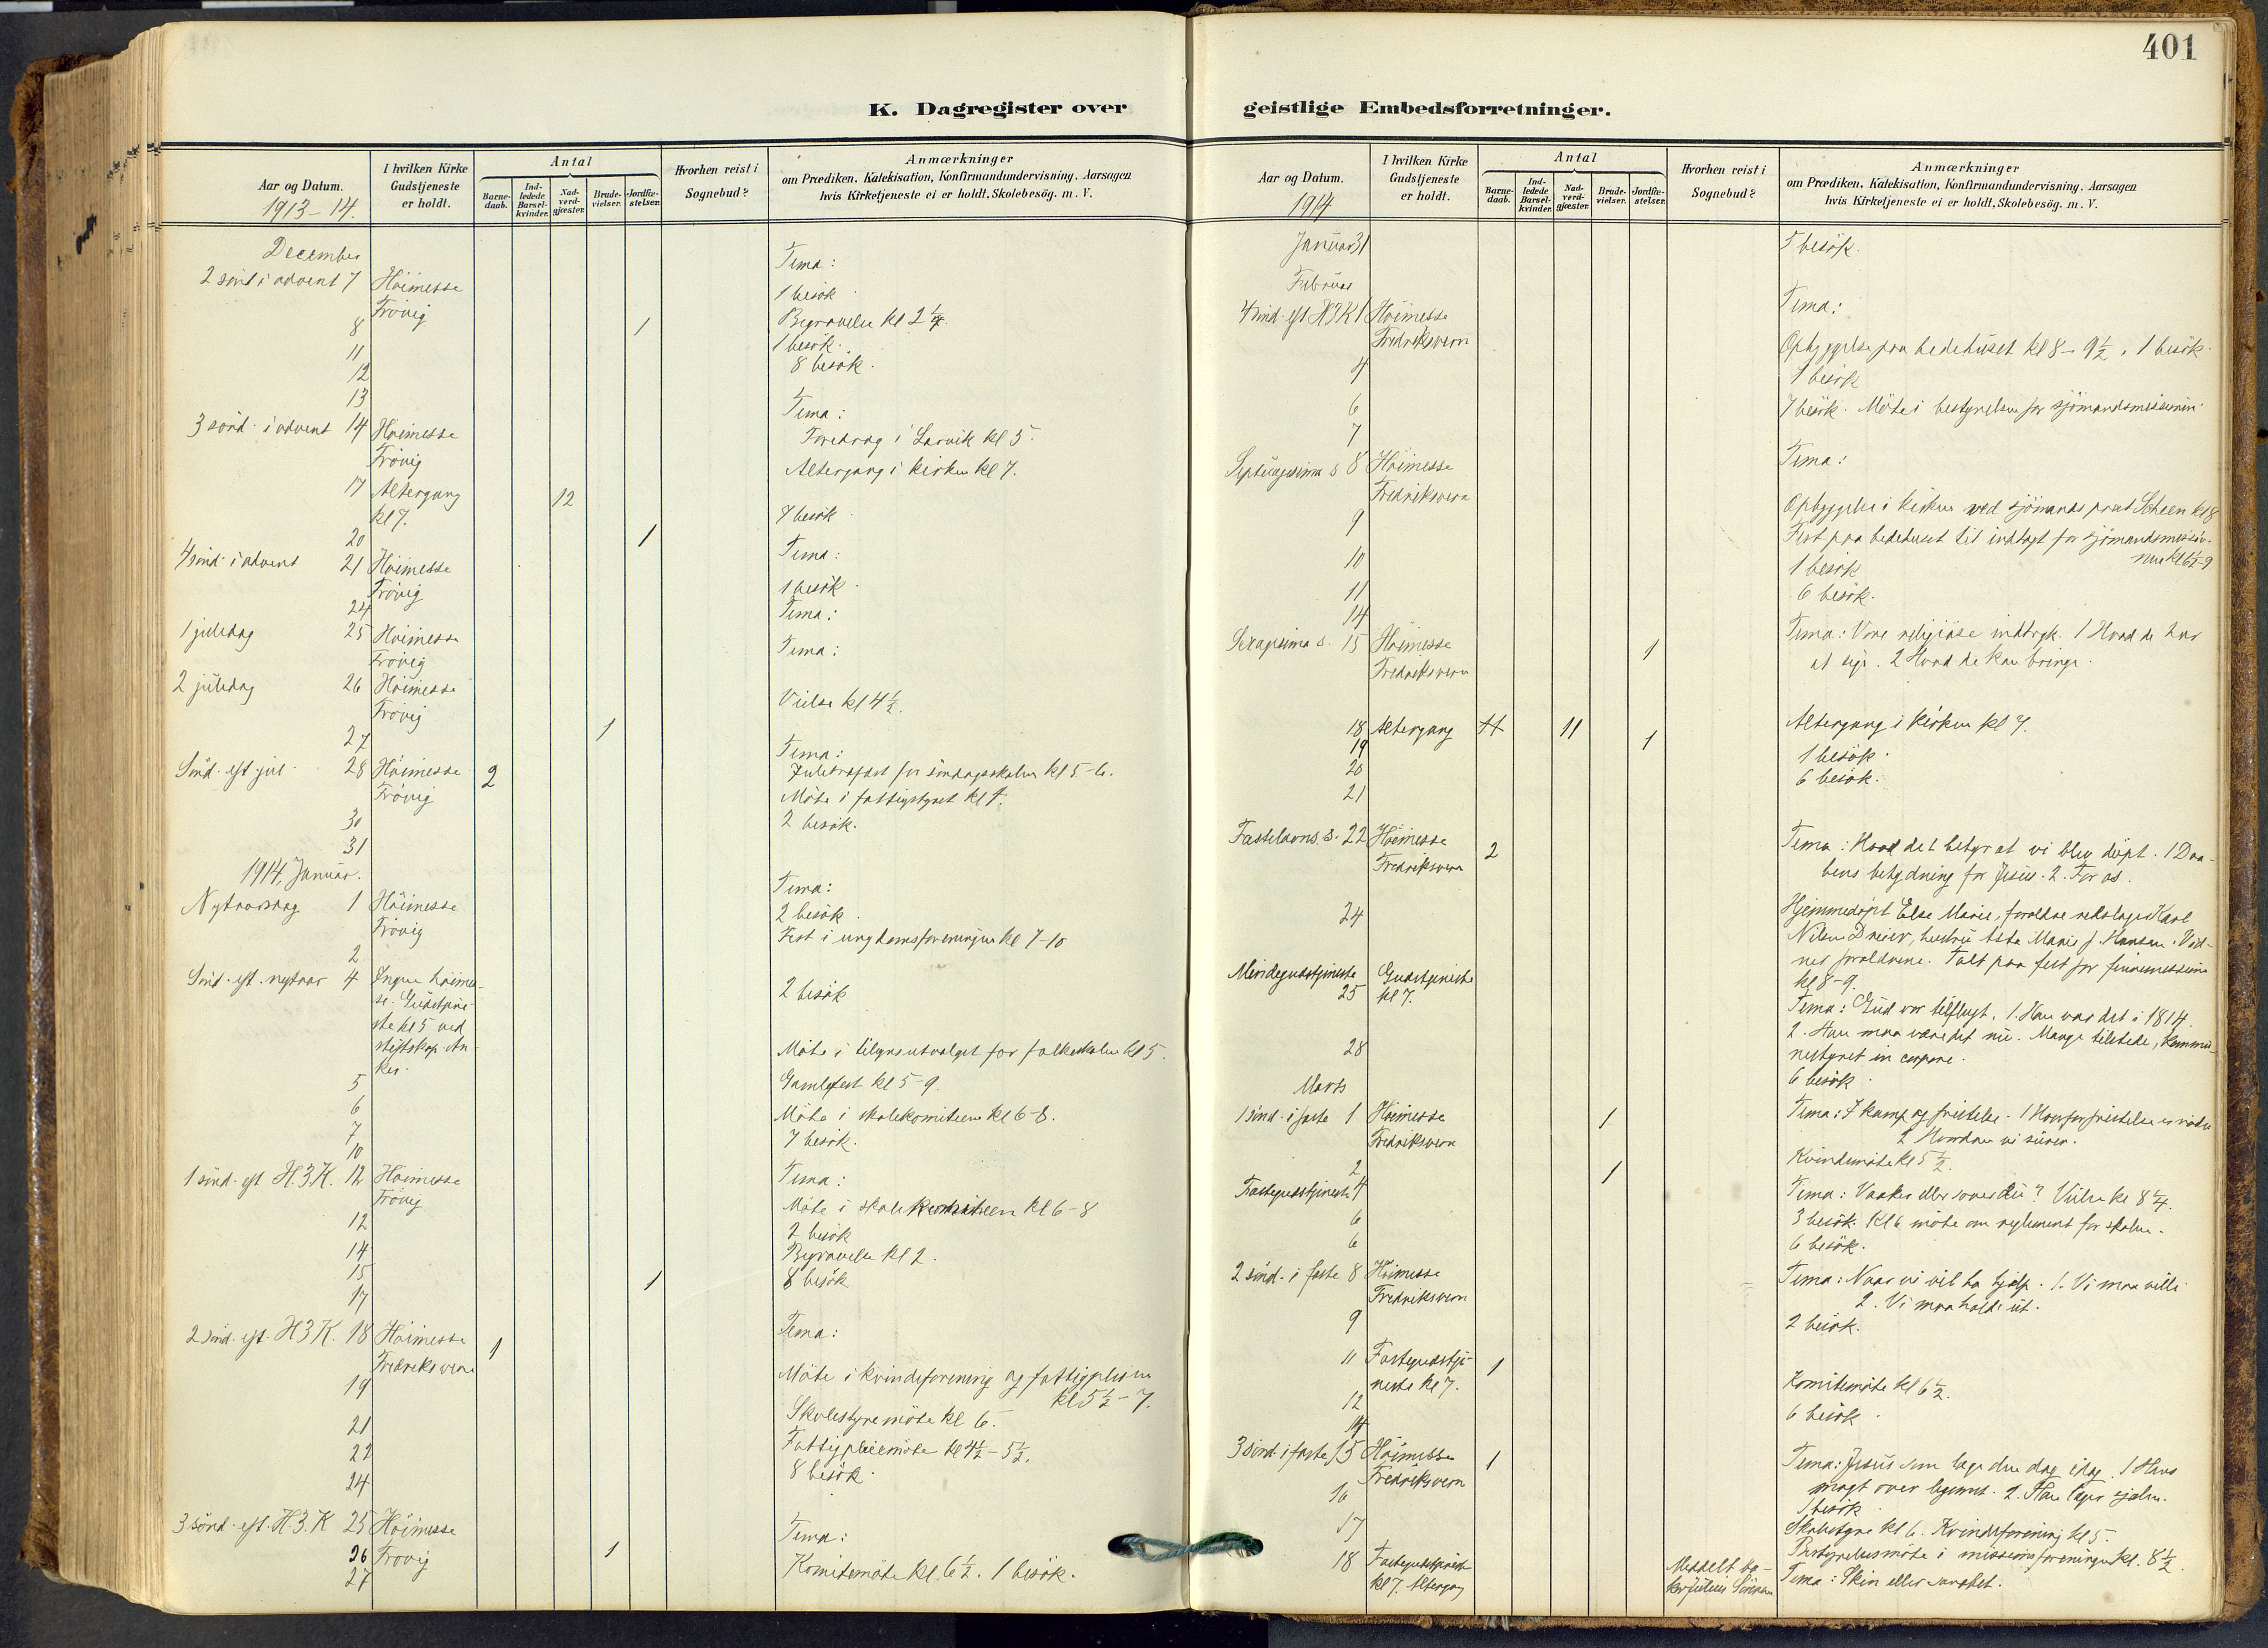 401
K. Dagregister over
geistlige Embedsforretninger.
Aar og Datum.
1913–14.
I hvilken Kirke Gudstjeneste er holdt.
Antal
Barne-daab.
Ind-ledede Barsel-kvinder.
Nad-verd-gjæster.
Brude-vielser.
Jordfæ-stelser.
Hvorhen reist i Sognebud?
Anmærkninger
om Prædiken, Katekisation, Konfirmandundervisning. Aarsagen
hvis Kirketjeneste ei er holdt, Skolebesög. m. V.
December
2 sönd i advent 7 Höimesse Tema:
Frövig 1 besök
8 1 Begravelse kl 2 1/4.
11 1 besök.
12 8 besök.
13
3 sönd. i advent 14 Höimesse Tema:
Frövig Foredrag i Larvik kl 5.
17 Altergang 12 Altergang i kirken kl 7.
kl 7.
20 1 7 besök
4 sönd. i advent 21 Höimesse Tema:
Frövig
24 1 besök.
1 juledag 25 Höimesse Tema:
Frövig
2 juledag 26 Höimesse Tema:
Frövig
27 1 Vielse kl 4 1/2.
Sönd. eft jul. 28 Höimesse 2 Tema:
Frövig Juletræfest for söndagsskolen kl 5-6.
30 Möte i fattigstyret kl 4.
31 2 besök.
1914, Januar.
Nytaarsdag 1 Höimesse Tema:
Frövig 2 besök.
2 Fest i ungdomsforeningen kl 7-10
Sönd. eft. nytaar 4 Ingen höimes-
se. Gudstjene- 2 besök
ste kl 5 ved
stiftskap. An-
ker.
5 Möte i tilsynsutvalget for folkeskolen kl 5.
6 Gamlefest kl 5-9.
7 Möte i skolekomiteen kl 6-8.
10 7 besök.
1 sönd. eft H.3.K. 12 Höimesse Tema:
Frövig
12 Möte i skolekomiteen kl 6-8
14 2 besök
15 1 Begravelse kl 2.
17 8 besök
2 sönd. eft. H3K. 18 Höimesse 1 Tema:
Fredriksvern
19 Möte i kvindeforening og fattigpleien
kl 5 1/2 - 7.
21 Skolestyremöte kl 6.
22 Fattigpleiemöte kl 4 1/2 - 5 1/2.
24 8 besök.
3 sönd. eft. H.3.K 25 Höimesse Tema:
26 Frövig 1
27 Komitemöte kl 6 1/2. 1 besök.
Aar og Datum.
1914
I hvilken Kirke Gudstjeneste er holdt.
Antal
Barne-daab.
Ind-ledede Barsel-kvinder.
Nad-verd-gjæster.
Brude-vielser.
Jordfæ-stelser.
Hvorhen reist i Sognebud?
Anmærkninger
om Prædiken, Katekisation, Konfirmandundervisning. Aarsagen
hvis Kirketjeneste ei er holdt, Skolebesög. m. V.
Januar 31 7 besök.
Februar
4 sönd. eft H3K 1 Höimesse Tema:
Fredriksvern Opbyggelse paa bedehuset kl 8 - 9 1/2. 1 besök.
4 1 besök
6 7 besök. Möte i bestyrelsen for sjömandsmissionen.
7
Septuagesima s 8 Höimesse Tema:
Fredriksvern
9 Opbyggelse i kirken ved sjömandsprest Scheen kl 8
10 Fest paa bedehuset til indtægt for sjömandsmissio-
nen kl 6 1/2-9
11 1 besök
14 6 besök.
Sexagesima s. 15 Höimesse 1 Tema: Vore religiöse indtryk. 1 Hvad de har
Fredriksvern at sige. 2 Hvad de kan bringe.
18 Altergang 11 Altergang i kirken kl 7.
19 1
20 1 besök.
21 6 besök.
Fastelavns s. 22 Höimesse 2 Tema: Hvad det betyr at vi blev döpt. 1 Daa-
Fredriksvern bens betydning for Jesus. 2. For os.
24 Hjemmedöpt Else Marie, foreldre Karl
Nilsen Dreier, hustru Marie f. Hansen.
Talt paa fest for finnemissionen
kl 8-9.
Mindegudstjeneste 25 Gudstjeneste kl 7. Tema: Gud vor tilflugt. 1. Han var det i 1814.
2. Han maa være det nu. Mange tilstede, kommu-
nestyret in corpore.
28 6 besök.
Marts
1 sönd. i faste 1 Höimesse 1 Tema: I kamp og fristelse. 1 Hvorfor fristelse
Fredriksvern 2 Hvordan vi seirer.
2 1 Kvindemöte kl 5 1/2.
Fastegudstjeneste 4 Tema: Vaaker eller sover du? Vielse kl 8 1/4.
6 3 besök. Kl 6 möte om reglement for skolen.
6 6 besök.
2 sönd. i faste 8 Höimesse Tema: Naar vi vil ha hjelp. 1. Vi maa ville
Fredriksvern 2. Vi maa holde ut.
9 2 besök.
11 Fastegudstje- 1
neste kl 7.
12 Komitemöte kl 6 1/2.
14 6 besök.
3 sönd i faste 15 Höimesse 1 Tema: Jesus som læge den dag idag. 1 Hans
Fredriksvern magt over legemet. 2. Han læger sjælen.
16 1 besök
17 Skolestyre kl 6. Kvindeforening kl 5.
Bestyrelsesmöte i missionsforeningen kl. 8 1/2.
18 Fastegudstjeneste Meddelt ba- Tema: Skin eller sandhet.
kl 7. Altergang ker Julius